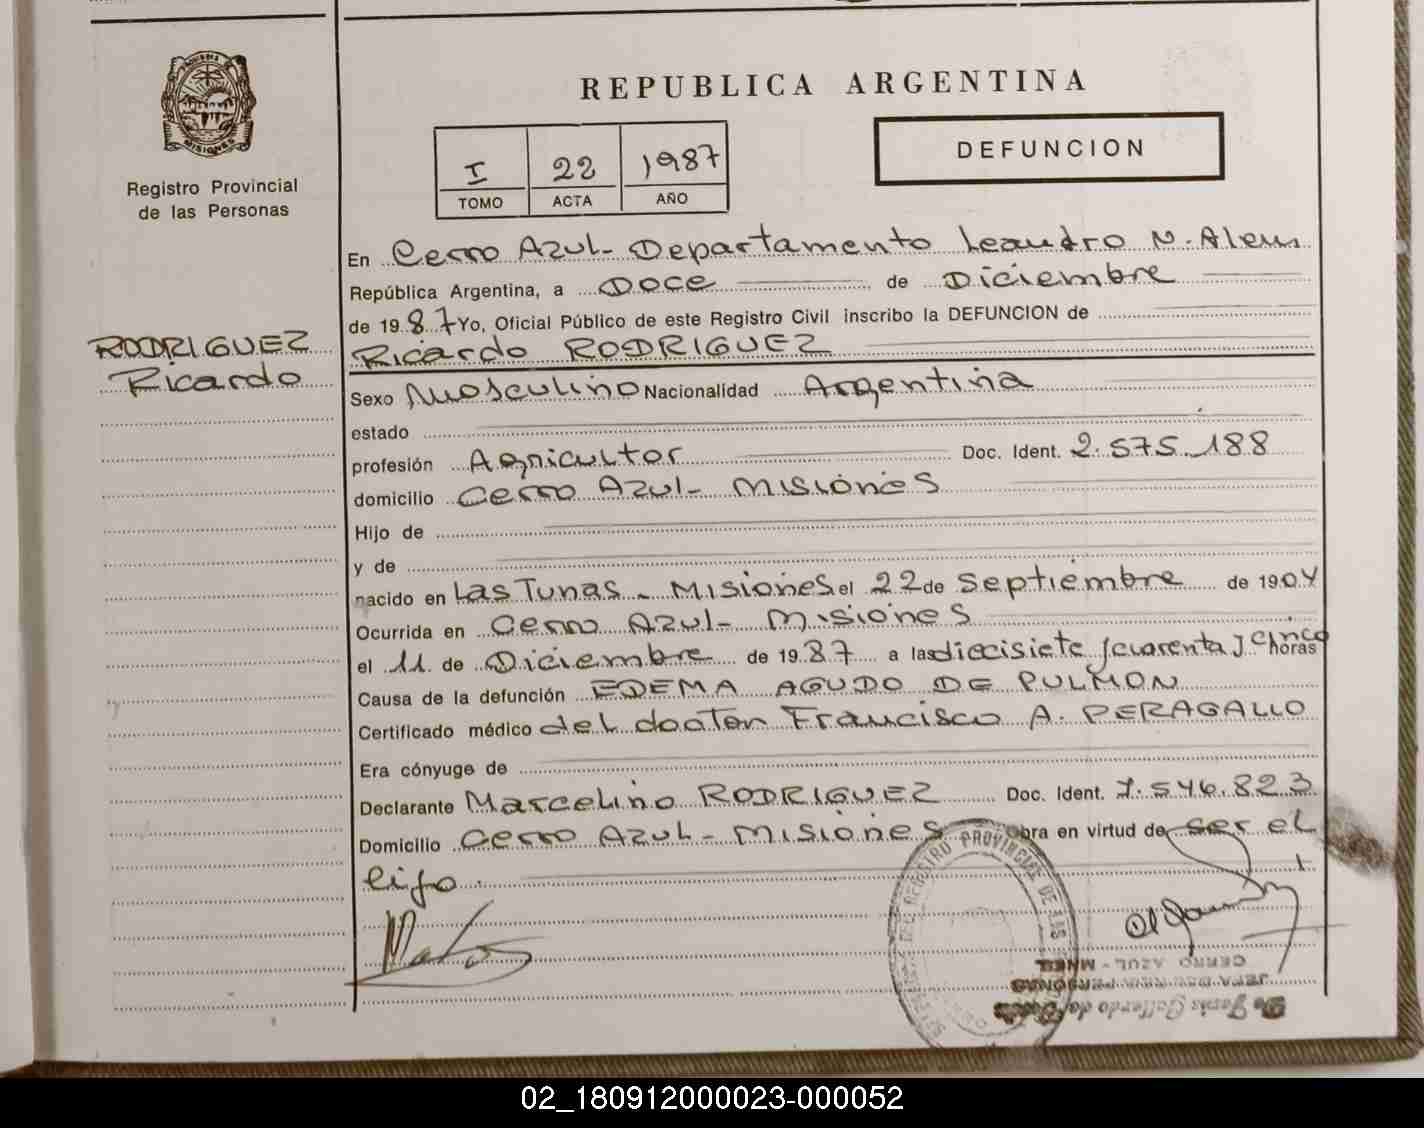 PROVINCIA DE
MISIONES
Registro Provincial
de las Personas
RODRIGUEZ
Ricardo
REPUBLICA ARGENTINA
I 22 1987
TOMO ACTA AÑO
DEFUNCION
En Cerro Azul - Departamento Leandro N. Alem
República Argentina, a Doce de Diciembre
de 1987 Yo, Oficial Público de este Registro Civil inscribo la DEFUNCION de
Ricardo RODRIGUEZ
Sexo Masculino Nacionalidad Argentina
estado
profesión Agricultor Doc. Ident. 2.575.188
domicilio Cerro Azul - Misiones
Hijo de
y de
nacido en Las Tunas - Misiones el 22 de Septiembre de 1904
Ocurrida en Cerro Azul - Misiones
el 11 de Diciembre de 1987 a las diecisiete y cuarenta y cinco horas
Causa de la defunción EDEMA AGUDO DE PULMON
Certificado médico del doctor Francisco A. PERAGALLO
Era cónyuge de
Declarante Marcelino RODRIGUEZ Doc. Ident. 7.546.823
Domicilio Cerro Azul - Misiones Obra en virtud de ser el
hijo.
REGISTRO PROVINCIAL DE LAS
CERRO AZUL - MNES.
02_180912000023-000052